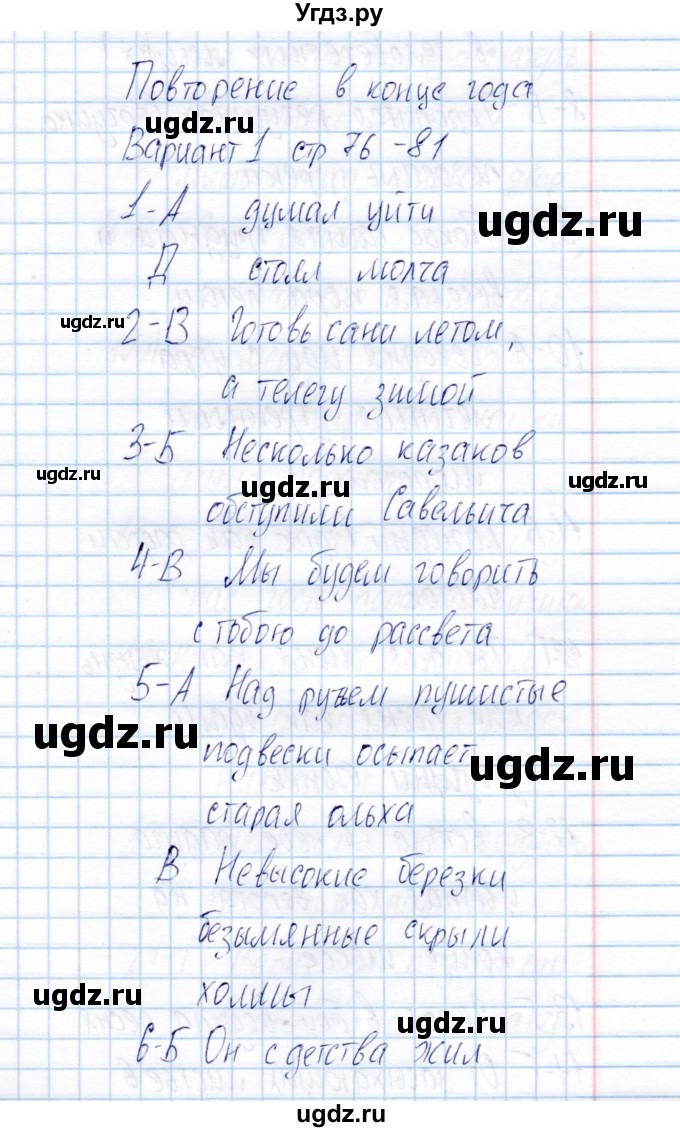 Угдз.ру
Повторение в конце года
ugdz.ru
Вариант 1 стр 76-81
1-А думал уйти
ugdz.ru
Д стоял молча
ugdz.ru
2-В Готовь сани летом,
а телегу зимой
3-Б Несколько казаков
ugdz.ru ugdz.ru ugdz.ru
обступили Савельича
4-В Мы будем говорить
с тобою до рассвета
5-А Над ручьем пушистые
ugdz.ru
подвески осыпает
ugdz.ru
старая ольха
В Невысокие березки
безымянные скрыли
холмы
ugdz.ru
ugdz.ru
6-Б Он с детства жил
ugdz.ru